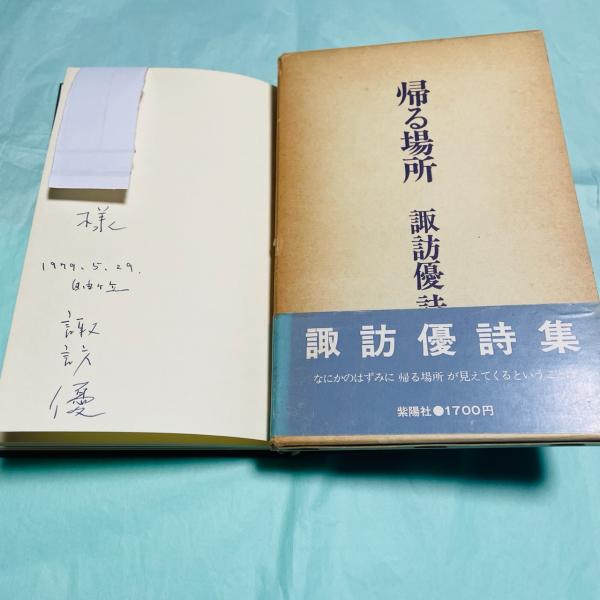 様
1979.5.29.
自由ヶ丘
諏
訪
優
帰る場所
諏訪優詩
諏訪優詩集
なにかのはずみに 帰る場所 が見えてくるということ
紫陽社●1700円